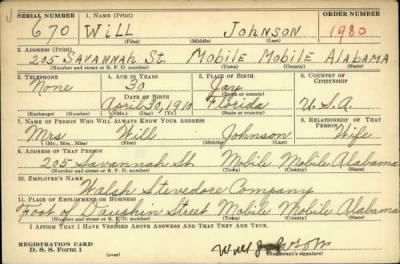 SERIAL NUMBER 1. NAME (Print) ORDER NUMBER
670 Will Johnson 1980
(First) (Middle) (Last)
2. ADDRESS (Print)
205 Savannah St. Mobile Mobile Alabama
(Number and street or R. F. D. number) (Town) (County) (State)
3. TELEPHONE 4. AGE IN YEARS 5. PLACE OF BIRTH 6. COUNTRY OF CITIZENSHIP
None 30 Jay
DATE OF BIRTH (Town or county)
April 30, 1910 Florida U.S.A.
(Exchange) (No.) (Mo.) (Day) (Yr.) (State or country)
7. NAME OF PERSON WHO WILL ALWAYS KNOW YOUR ADDRESS 8. RELATIONSHIP OF THAT PERSON
Mrs Will Johnson Wife
(Mr., Mrs., Miss) (First) (Middle) (Last)
9. ADDRESS OF THAT PERSON
205 Savannah St. Mobile Mobile Alabama
(Number and street or R. F. D. number) (Town) (County) (State)
10. EMPLOYER'S NAME
Walsh Stevedore Company
11. PLACE OF EMPLOYMENT OR BUSINESS
Foot of Dauphin Street Mobile Mobile Alabama
(Number and street or R. F. D. number) (Town) (County) (State)
I AFFIRM THAT I HAVE VERIFIED ABOVE ANSWERS AND THAT THEY ARE TRUE.
REGISTRATION CARD
D. S. S. Form 1
(Registrant's signature)